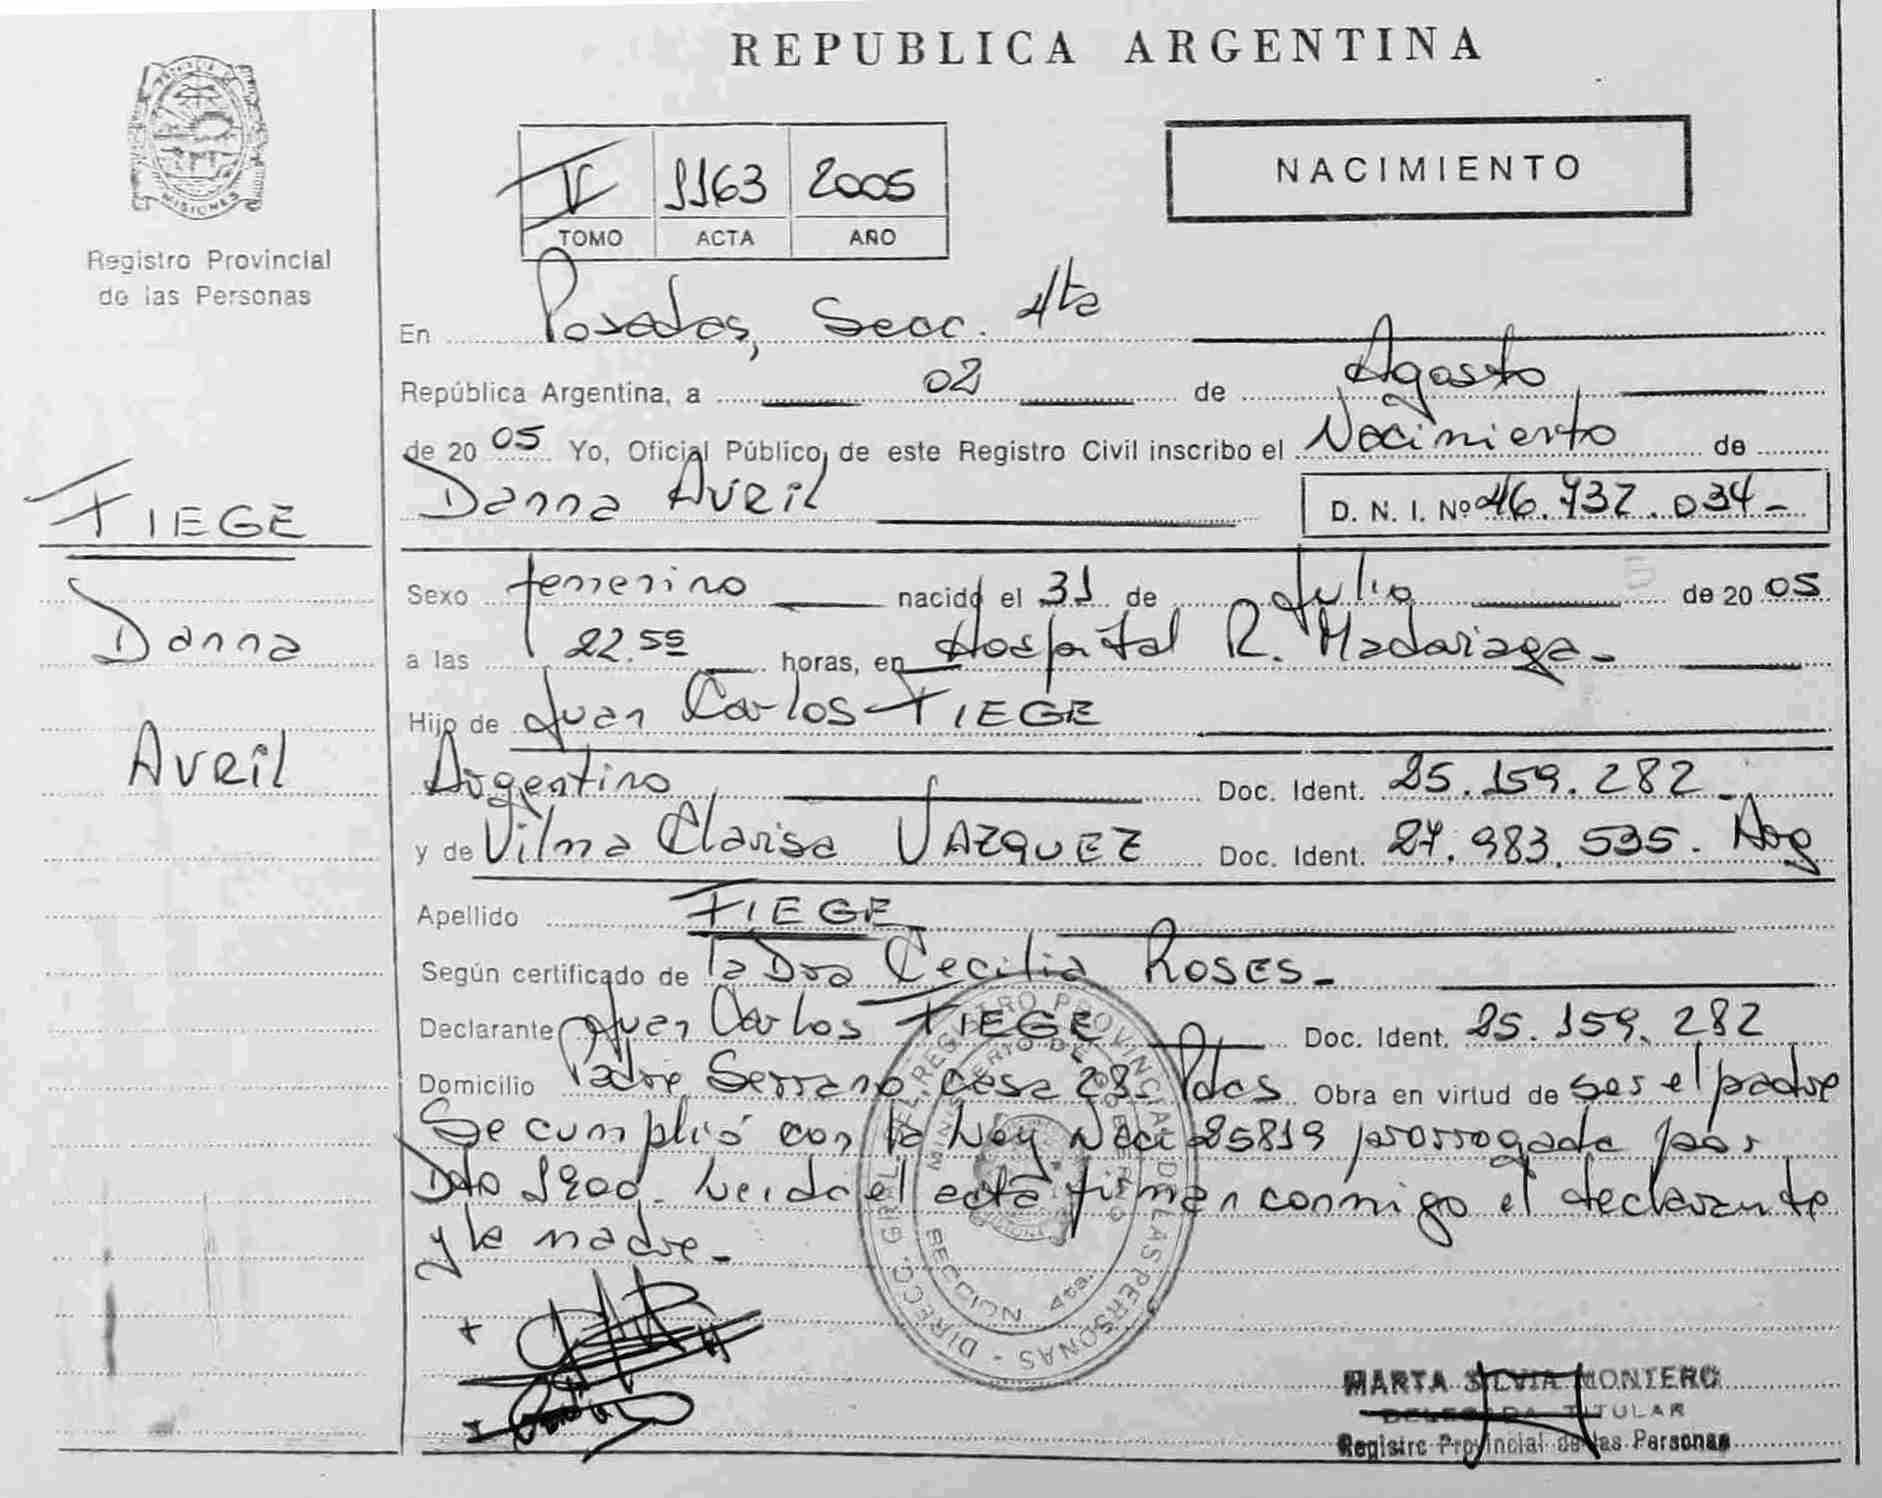 REPUBLICA ARGENTINA
MISIONES
Registro Provincial
de las Personas
NACIMIENTO
V 1163 2005
TOMO ACTA AÑO
En Posadas, Secc. 4ta
República Argentina, a 02 de Agosto
de 2005 Yo, Oficial Público, de este Registro Civil inscribo el Nacimiento de
Danna Avril D. N. I. Nº 46.737.034-
FIEGE
Danna
Avril
Sexo femenino nacido el 31 de Julio de 2005
a las 22.55 horas, en Hospital R. Madariaga-
Hijo de Juan Carlos FIEGE
Argentino Doc. Ident. 25.159.282-
y de Vilma Clarisa VAZQUEZ Doc. Ident. 27.983.535. Arg
Apellido FIEGE
Según certificado de la Dra Cecilia Roses-
Declarante Juan Carlos FIEGE Doc. Ident. 25.159.282
Domicilio Padre Serrano casa 28 Pdas Obra en virtud de ser el padre
Se cumplió con la Ley Nac 25819 prorrogada por
Dto 1900. Leida el acta firman conmigo el declarante
y la madre-
DIRECC. GRAL. DEL REGISTRO PROVINCIAL DE LAS PERSONAS
MINISTERIO DE GOBIERNO
SECCION 4ta.
MARTA SILVIA MONTERO
DELEGADA TITULAR
Registro Provincial de las Personas